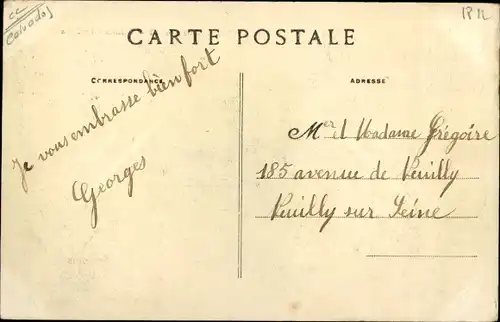 cc
Calvados
CARTE POSTALE
CORRESPONDANCE
ADRESSE
Je vous embrasse bien fort
Georges
Mer & Madame Grégoire
185 avenue de Neuilly
Neuilly sur Seine